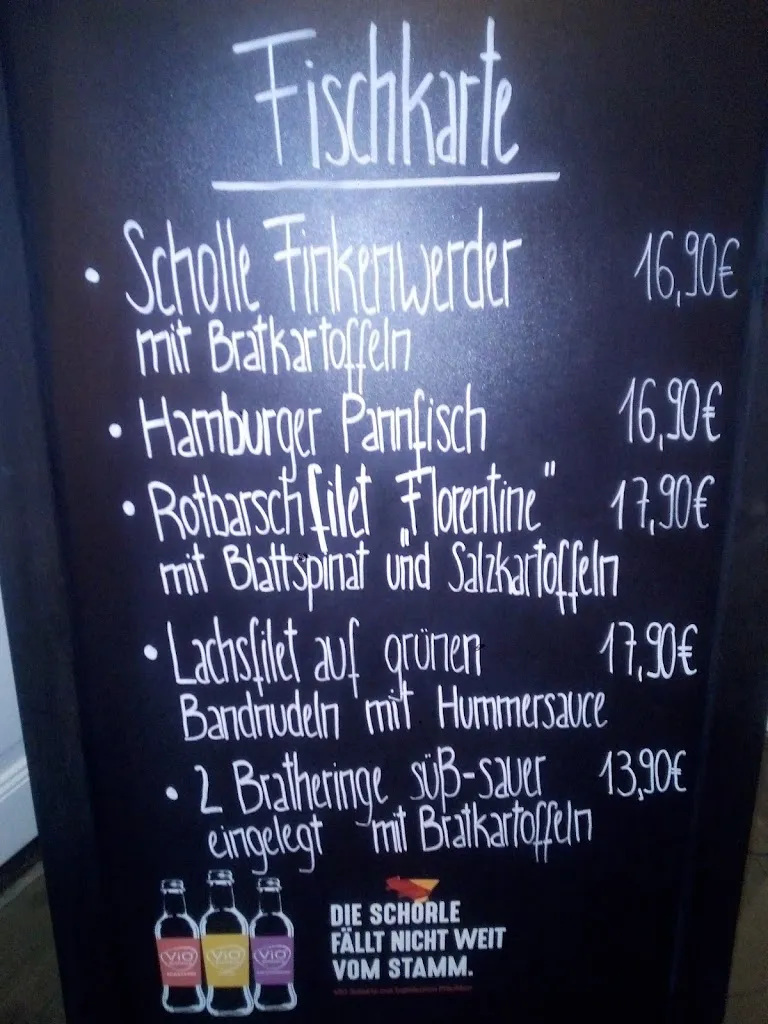 Fischkarte
• Scholle Finkenwerder 16,90€
mit Bratkartoffeln
• Hamburger Pannfisch 16,90€
• Rotbarschfilet "Florentine" 17,90€
mit Blattspinat und Salzkartoffeln
• Lachsfilet auf grünen 17,90€
Bandnudeln mit Hummersauce
• 2 Bratheringe süß-sauer 13,90€
eingelegt mit Bratkartoffeln
ViO ViO ViO
DIE SCHORLE
FÄLLT NICHT WEIT
VOM STAMM.